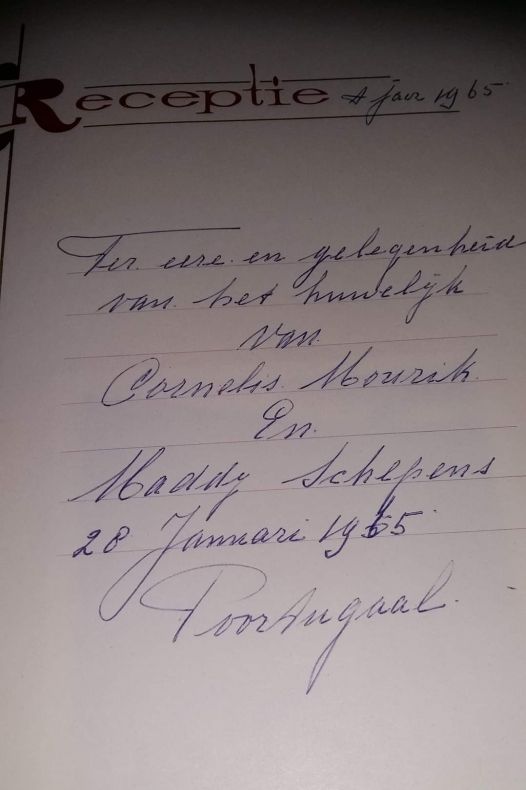 Receptie A jaar 1965
Ter eere en gelegenheid
van het huwelijk
van
Cornelis Mourik
En
Maddy Schepens
28 Januari 1965
Poortugaal.